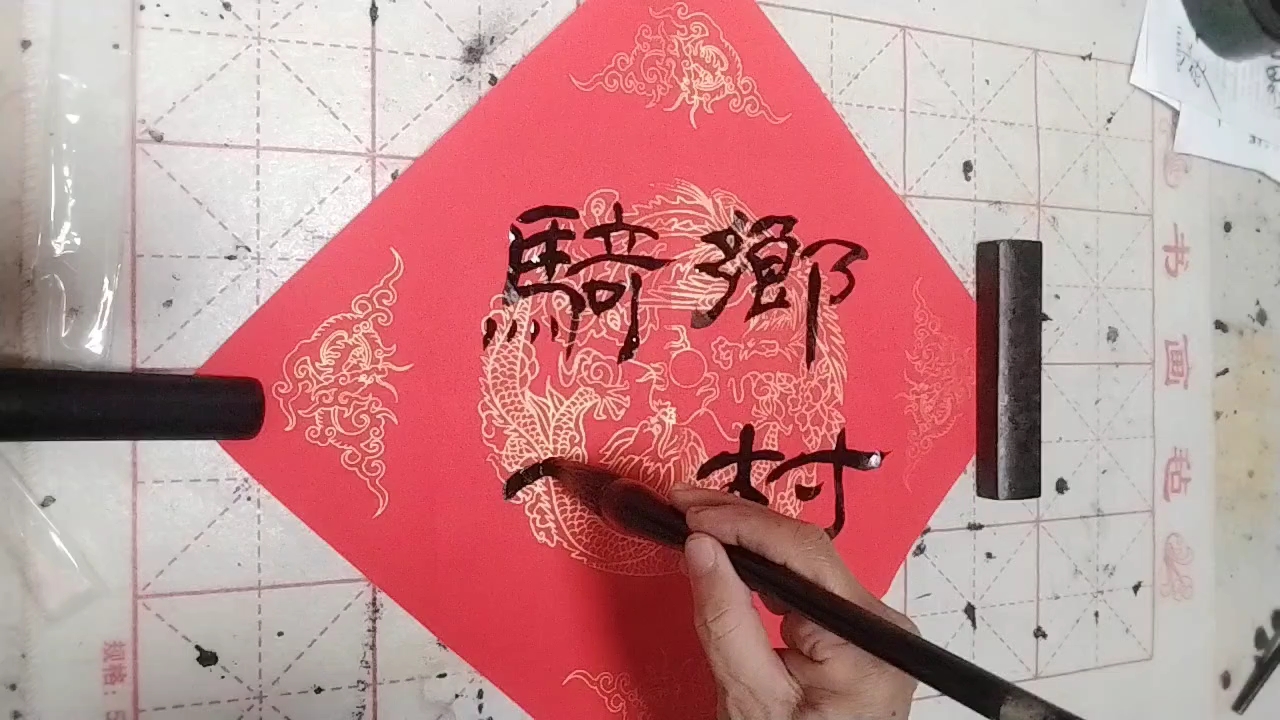 鄉村
騎
书画毡
规格:5